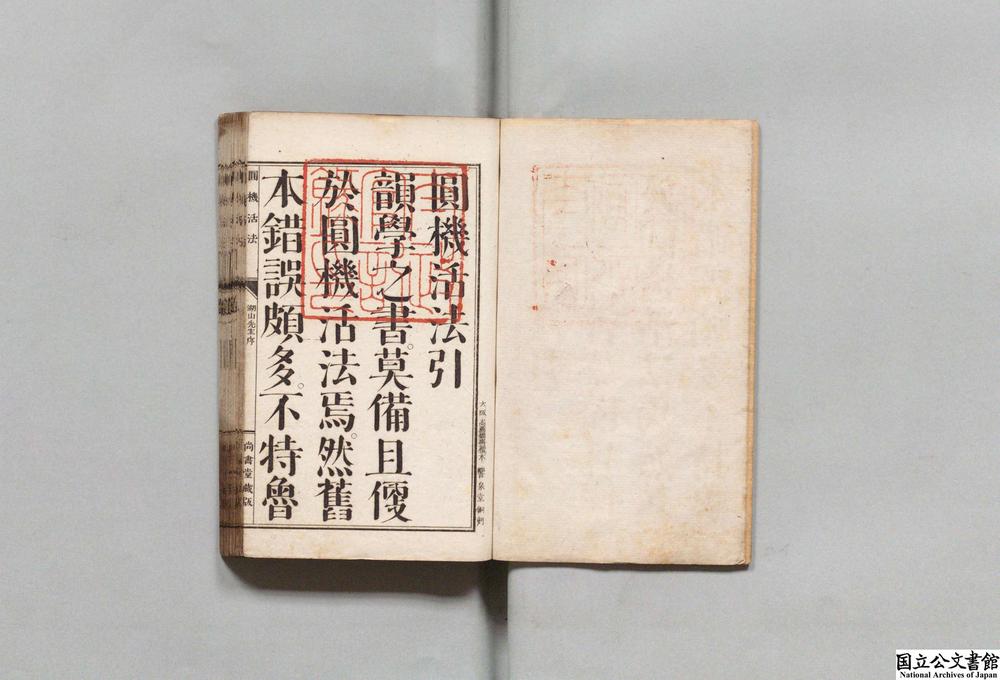 圓機活法引
韻學之書。莫備且便
於圓機活法焉。然舊
本錯誤頗多。不特魯
圓機活法
湖山先生序
尚書堂藏版
国立公文書館
National Archives of Japan